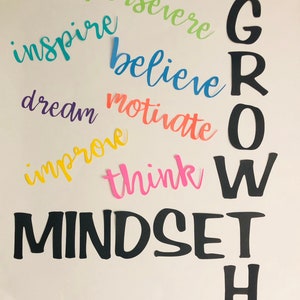 persevere
inspire
believe
dream
motivate
improve
think
GROWTH
MINDSET